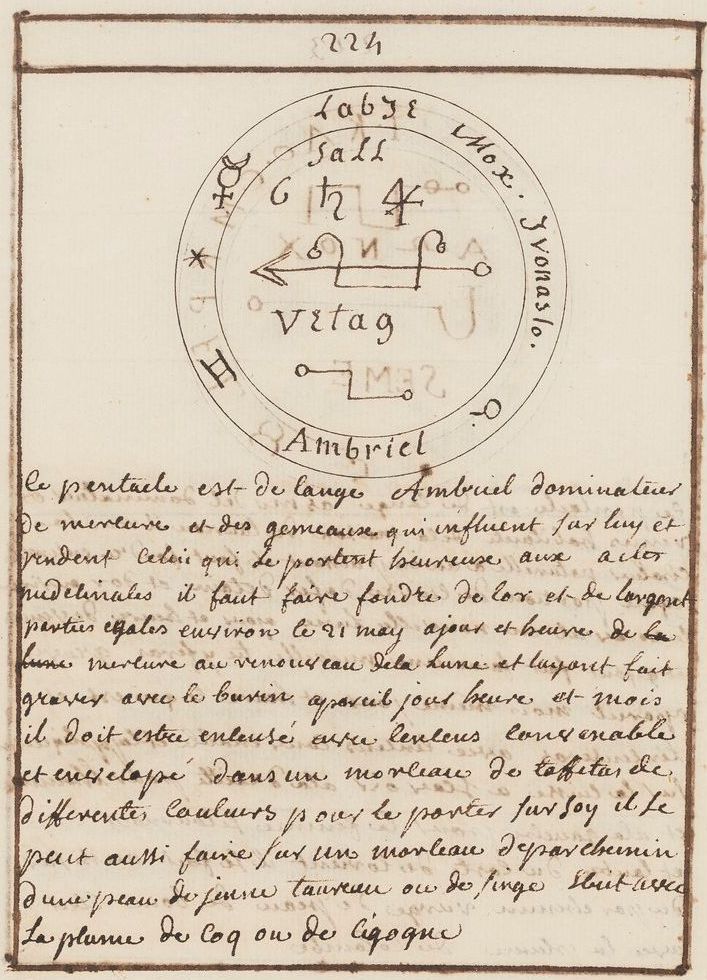 224
Labze
Mox. Jvonaslo.
Sall
6 ♄
Vetag
♊
Ambriel
Ce pentacle est de lange Ambriel dominateur
de mercure et des gemeaux qui influent sur luy et
rendent celui qui le portent heureuse aux actes
il faut faire fondre de lor et de largent
parties egales environ le 21 may a jour et heure de la
lune mercure au renouveau de la lune et layant fait
graver avec le burin apareil jour heure et mois
il doit estre ensensé avec lensens convenable
et envelopé dans un morceau de taffetas de
differentes couleurs pour le porter sur soy il se
peut aussi faire sur un morceau de parchemin
dune peau de jeune taureau ou de singe avec
la plume de coq ou de cigogne